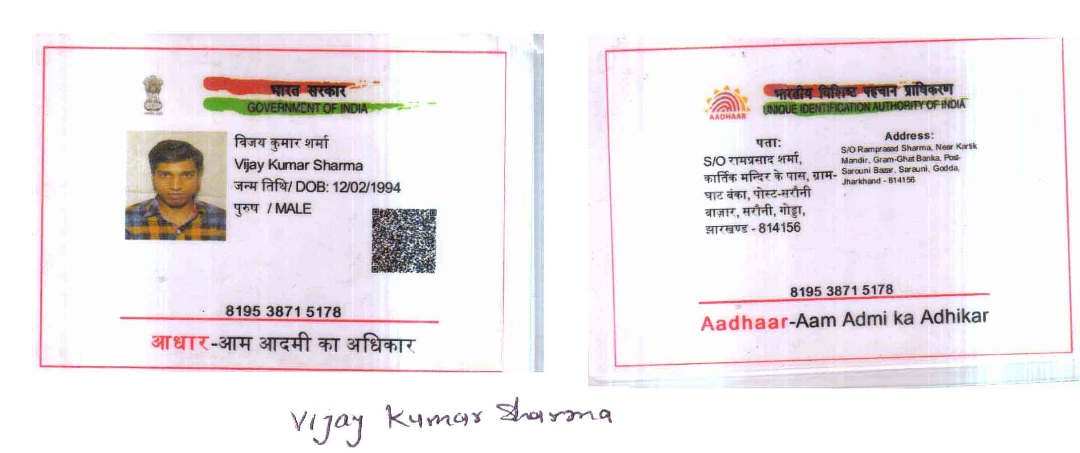 भारत सरकार
GOVERNMENT OF INDIA
विजय कुमार शर्मा
Vijay Kumar Sharma
जन्म तिथि/ DOB: 12/02/1994
पुरुष / MALE
8195 3871 5178
आधार-आम आदमी का अधिकार
भारतीय विशिष्ट पहचान प्राधिकरण
UNIQUE IDENTIFICATION AUTHORITY OF INDIA
AADHAAR
पता:
S/O रामप्रसाद शर्मा,
कार्तिक मन्दिर के पास, ग्राम-
घाट बंका, पोस्ट-सरौनी
बाज़ार, सरौनी, गोड्डा,
झारखण्ड - 814156
Address:
S/O Ramprasad Sharma, Near Kartik
Mandir, Gram-Ghat Banka, Post-
Sarouni Bazar, Sarauni, Godda,
Jharkhand - 814156
8195 3871 5178
Aadhaar-Aam Admi ka Adhikar
Vijay Kumar Sharma